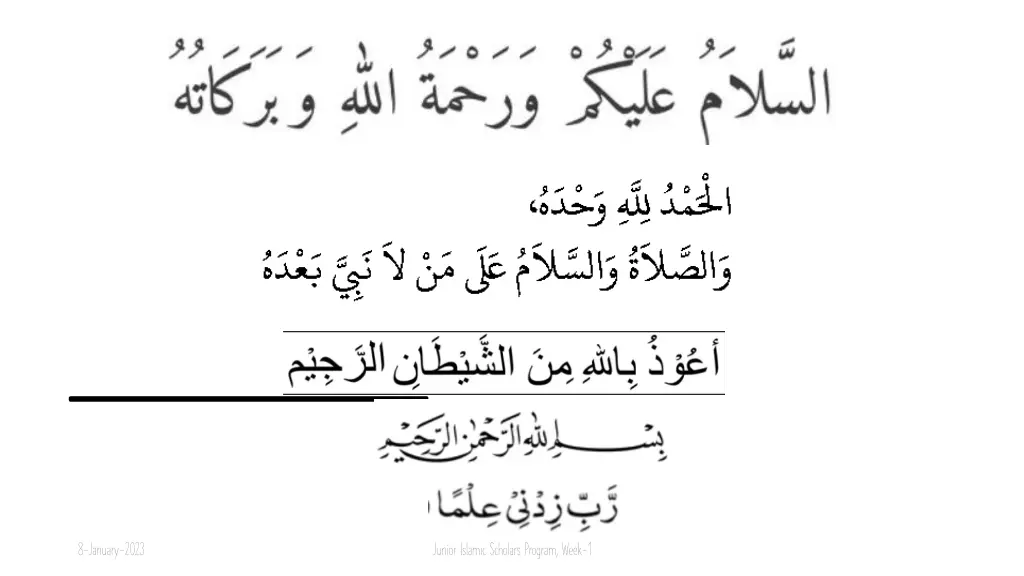 السَّلاَمُ عَلَيْكُمْ وَرَحْمَةُ اللهِ وَبَرَكَاتُهُ
الْحَمْدُ لِلَّهِ وَحْدَهُ،
وَالصَّلاَةُ وَالسَّلاَمُ عَلَى مَنْ لاَ نَبِيَّ بَعْدَهُ
أَعُوْذُ بِاللهِ مِنَ الشَّيْطَانِ الرَّجِيْمِ
بِسْمِ اللهِ الرَّحْمٰنِ الرَّحِيْمِ
رَّبِّ زِدْنِيْ عِلْمًا
8-January-2023
Junior Islamic Scholars Program, Week-1